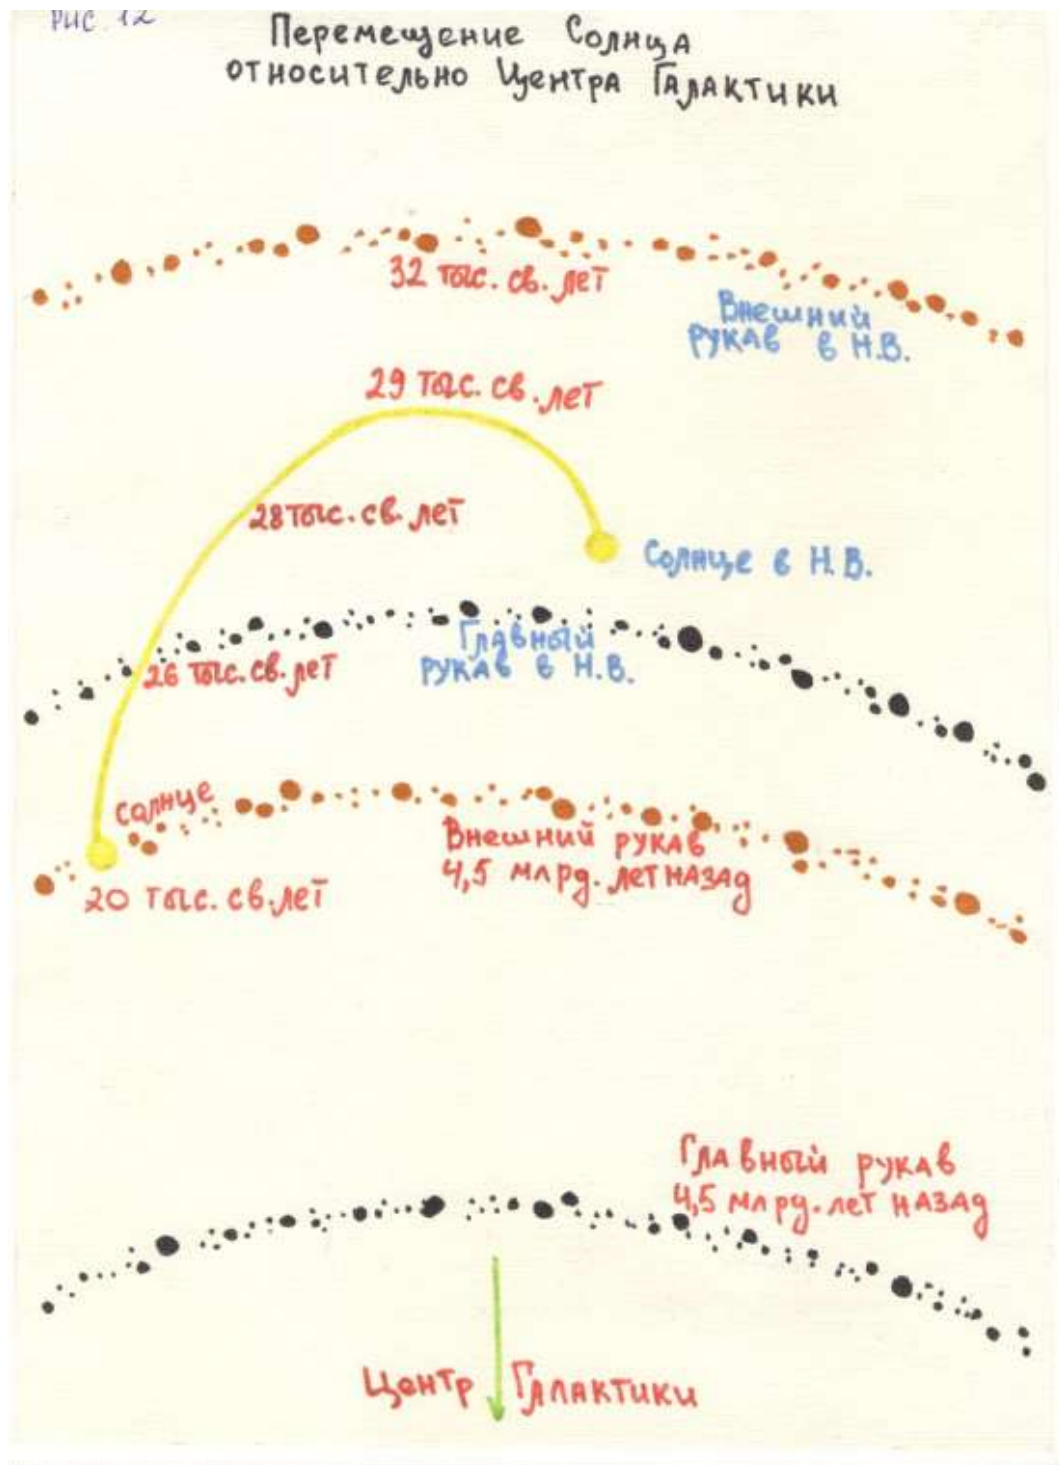 Рис. 12
Перемещение Солнца
относительно Центра Галактики
32 тыс. св. лет
Внешний
рукав в Н.В.
29 тыс. св. лет
28 тыс. св. лет
Солнце в Н.В.
Главный
рукав в Н.В.
26 тыс. св. лет
Солнце
Внешний рукав
4,5 млрд. лет назад
20 тыс. св. лет
Главный рукав
4,5 млрд. лет назад
Центр Галактики